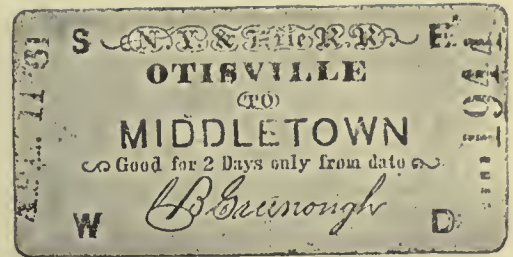 S N.Y. & Erie R.R. E
OTISVILLE
(TO)
MIDDLETOWN
Good for 2 Days only from date
Greenough
W D
1944